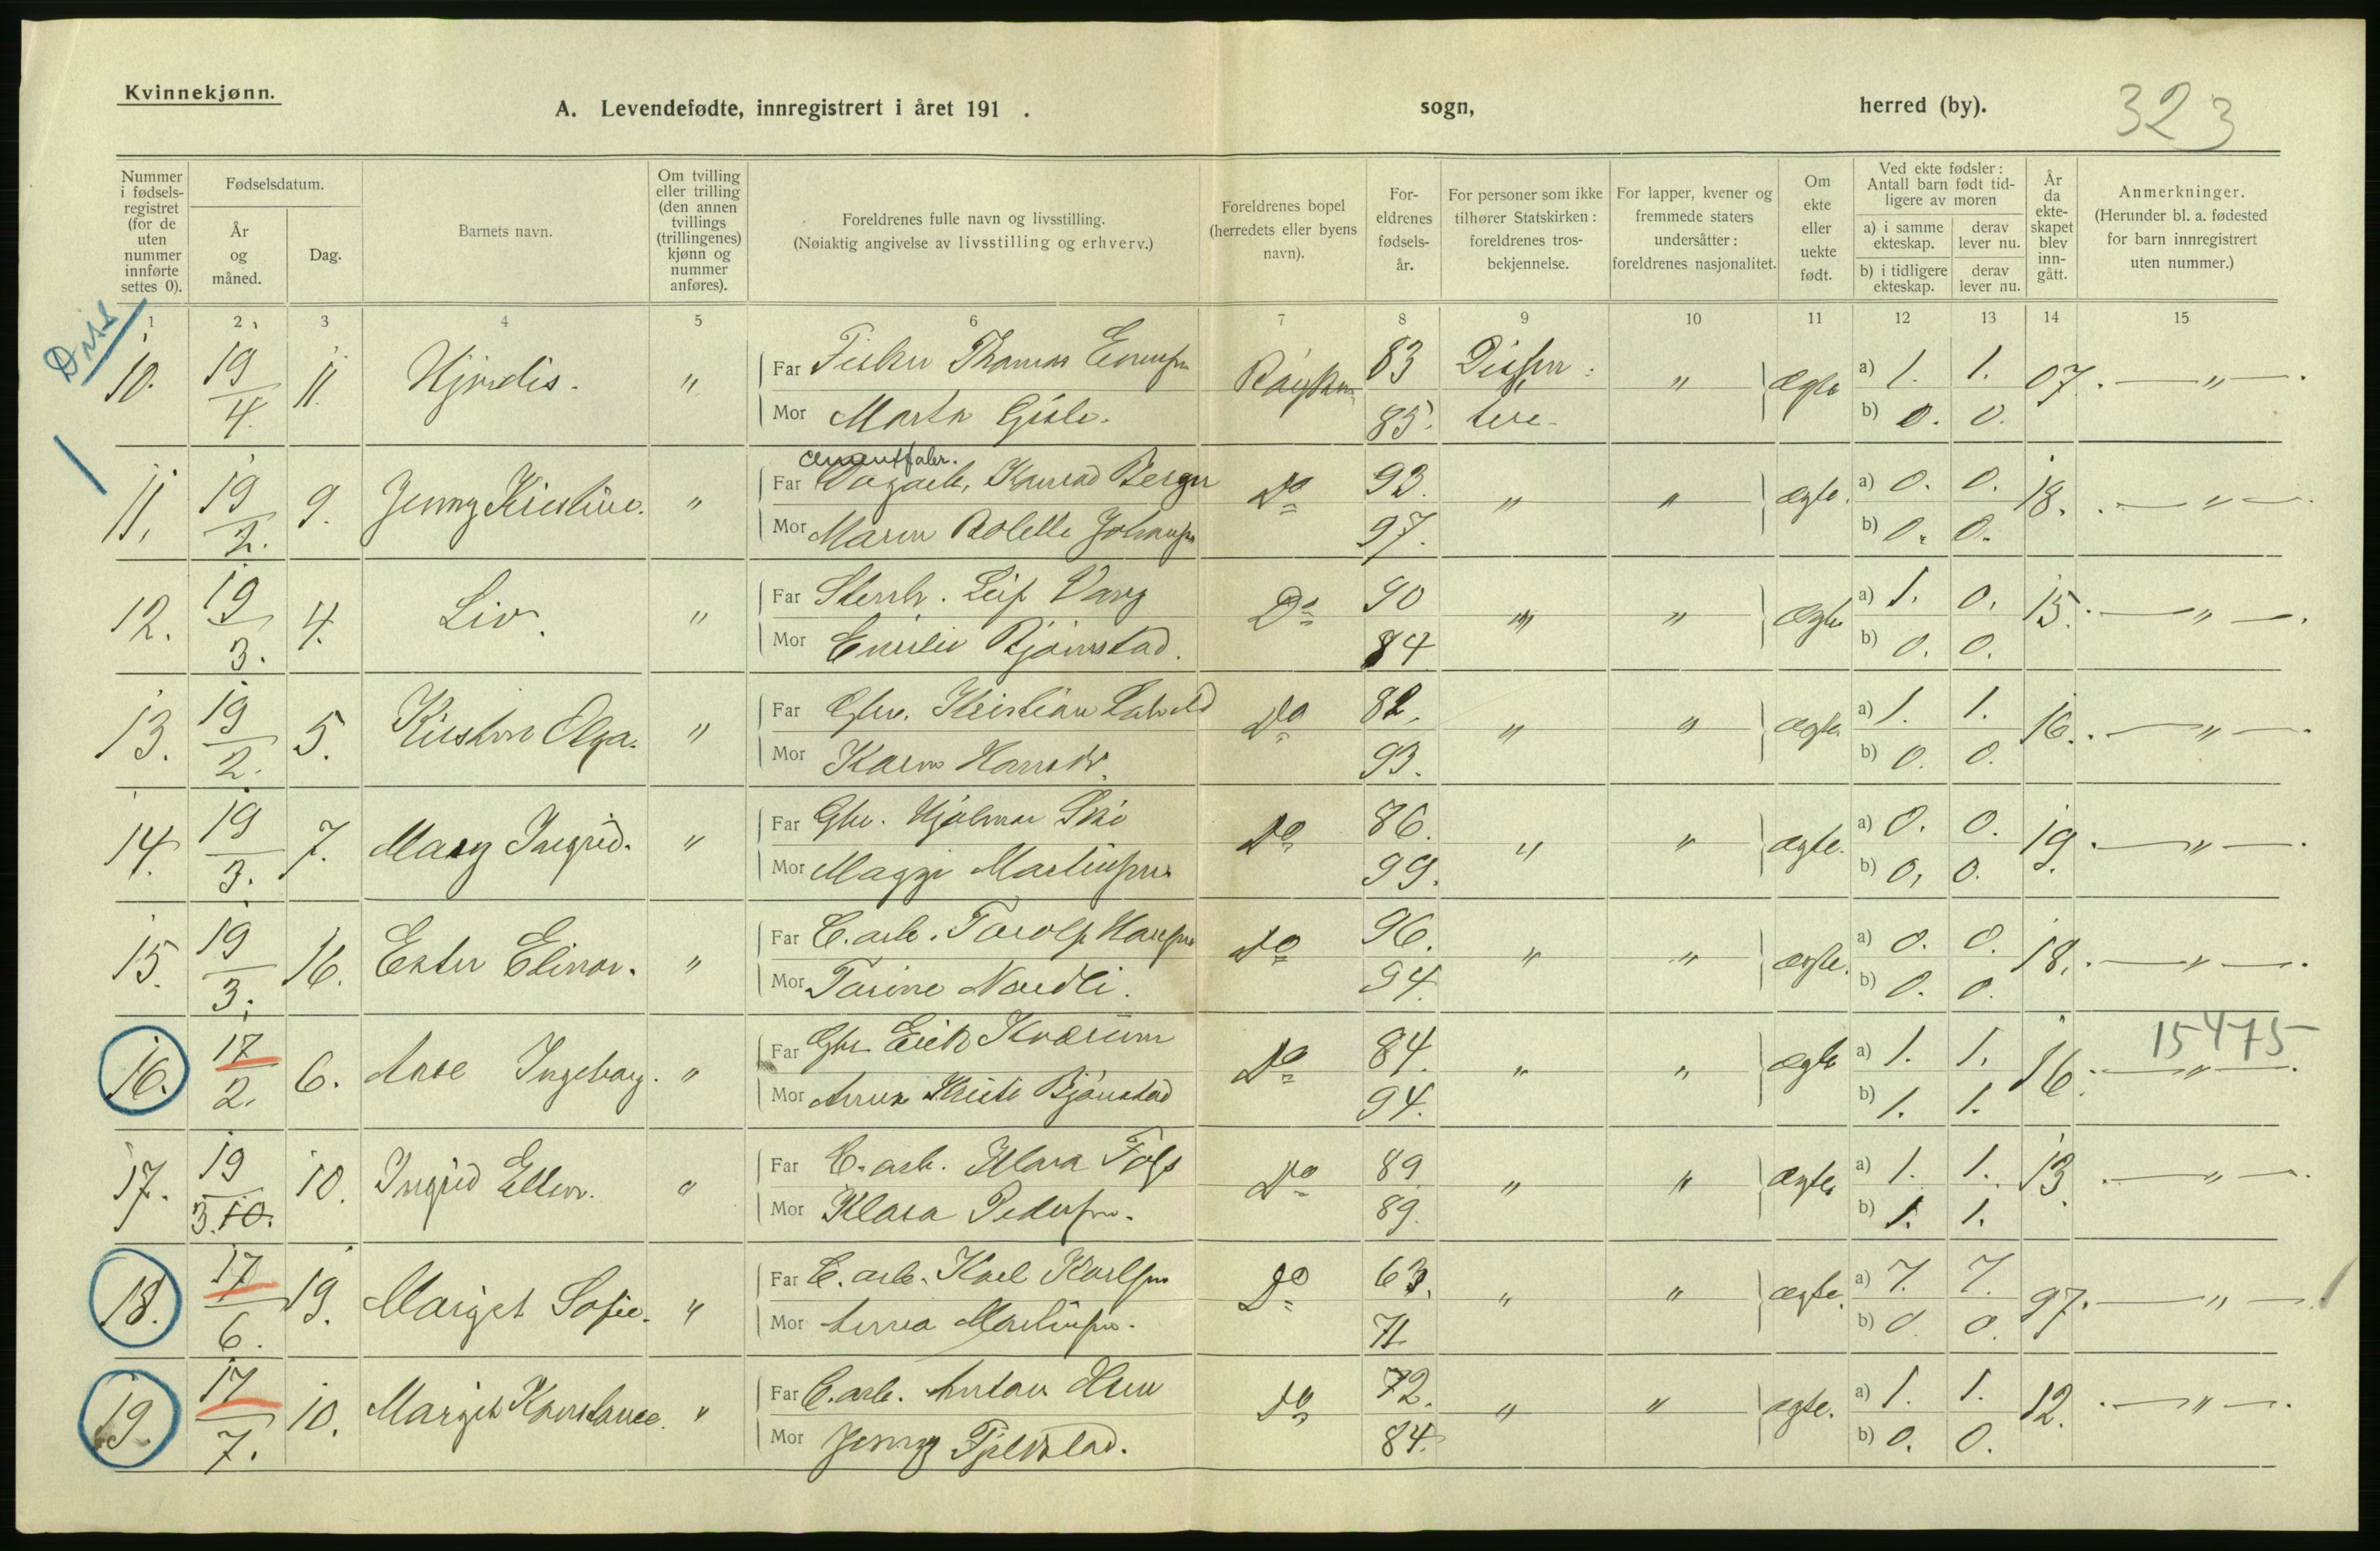 Kvinnekjønn.
A. Levendefødte, innregistrert i året 191 . sogn, herred (by). 323
Nummer i fødsels-registret (for de uten nummer innførte settes 0).
Fødselsdatum.
År og måned.
Dag.
Barnets navn.
Om tvilling eller trilling (den annen tvillings (trillingenes) kjønn og nummer anføres).
Foreldrenes fulle navn og livsstilling.
(Nøiaktig angivelse av livsstilling og erhverv.)
Foreldrenes bopel (herredets eller byens navn).
For-eldrenes fødsels-år.
For personer som ikke tilhører Statskirken: foreldrenes tros-bekjennelse.
For lapper, kvener og fremmede staters undersåtter: foreldrenes nasjonalitet.
Om ekte eller uekte født.
Ved ekte fødsler: Antall barn født tid-ligere av moren
a) i samme ekteskap.
derav lever nu.
b) i tidligere ekteskap.
derav lever nu.
År da ekte-skapet blev inn-gått.
Anmerkninger.
(Herunder bl. a. fødested for barn innregistrert uten nummer.)
1 2 3 4 5 6 7 8 9 10 11 12 13 14 15
Diss
10. 19/4. 11. Hjørdis. " Far Fisker Thomas 83 Dissen- " Ægte a) 1. 1. 07. — " —
Mor Marta 85. tere b) 0. 0.
11. 19/2. 9. Jenny Kristine. " Far Dagarb. Konrad Berger Do 93. " " ægte. a) 0. 0. 18. — " —
Mor Maren Bolette 97. b) 0. 0.
12. 19/3. 4. Liv. " Far Leif Vang Do 90 " " Ægte a) 1. 0. 15. — " —
Mor Emilie Bjørnstad. 84 b) 0. 0.
13. 19/2. 5. Kirsten Olga. " Far Gbr. Kristian Do 82. " " ægte a) 1. 1. 16. — " —
Mor Karen 93. b) 0. 0.
14. 19/3. 7. Mary Ingrid. " Far Gbr. Hjalmar Do 86. " " ægte. a) 0. 0. 19. — " —
Mor Maggi 99. b) 0. 0.
15. 19/3. 16. Ester Elinor. " Far E. arb. Do 96. " " ægte. a) 0. 0. 18. — " —
Mor Torine Nordli. 94. b) 0. 0.
15475
16. 17/2. 6. Aase Ingeborg. " Far Gbr Erik Kværum Do 84. " " ægte a) 1. 1. 16. — " —
Mor Anna Bjønstad 94. b) 1. 1.
17. 19/3. 10. 10. Ingrid Ellen. " Far E. arb. Do 89 " " Ægte a) 1. 1. 13. — " —
Mor Klara 89. b) 1. 1.
18. 17/6. 19. Margit Sofie. " Far E. arb. Karl Do 63. " " ægte. a) 7. 7. 97. — " —
Mor Anna 71 b) 0 0.
19. 17/7. 10. Margit Konstance. " Far E. arb. Anton Do 72. " " ægte. a) 1. 1. 12. — " —
Mor Jenny Fjeldstad. 84. b) 0. 0.